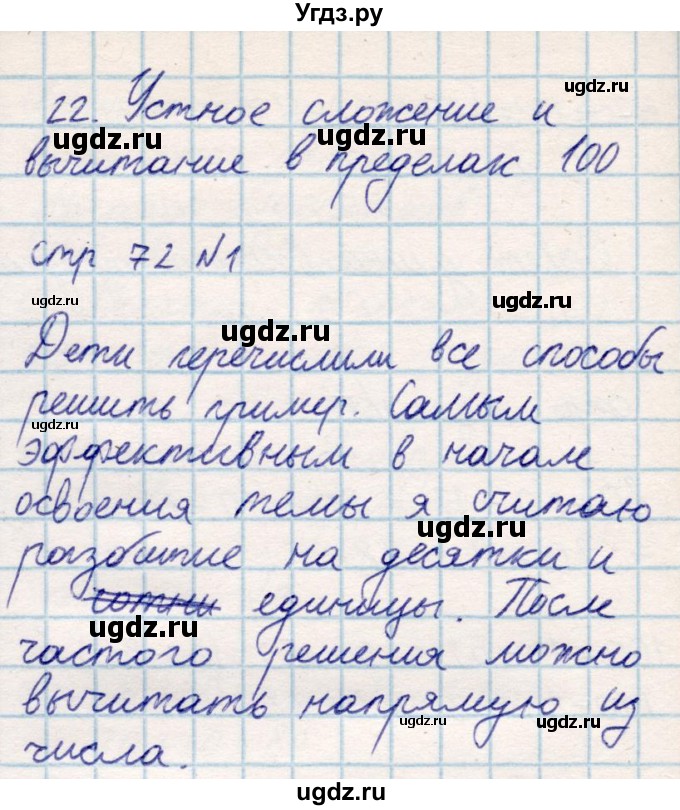 Угдз.ру
ugdz.ru
22. Устное сложение и
ugdz.ru ugdz.ru
вычитание в пределах 100
стр 72 №1
ugdz.ru ugdz.ru
ugdz.ru
Дети перечислили все способы
решить пример. Самым
ugdz.ru
эффективным в начале
освоения темы я считаю
ugdz.ru
разбитие на десятки и
сотни единицы. После
ugdz.ru
частого решения можно
вычитать напрямую из
ugdz.ru ugdz.ru
числа.
ugdz.ru